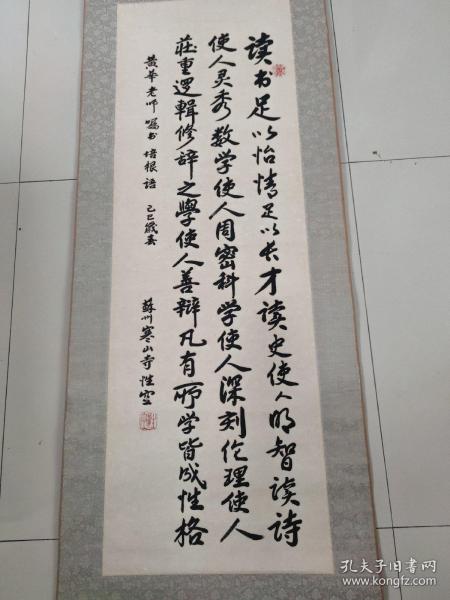 读书足以怡情足以长才读史使人明智读诗
使人灵秀数学使人周密科学使人深刻伦理使人
莊重逻輯修辞之學使人善辯凡有所学皆成性格
黄華老师嘱书 培根语 己巳歲春
蘇州寒山寺性空
孔夫子旧书网
www.kongfz.com